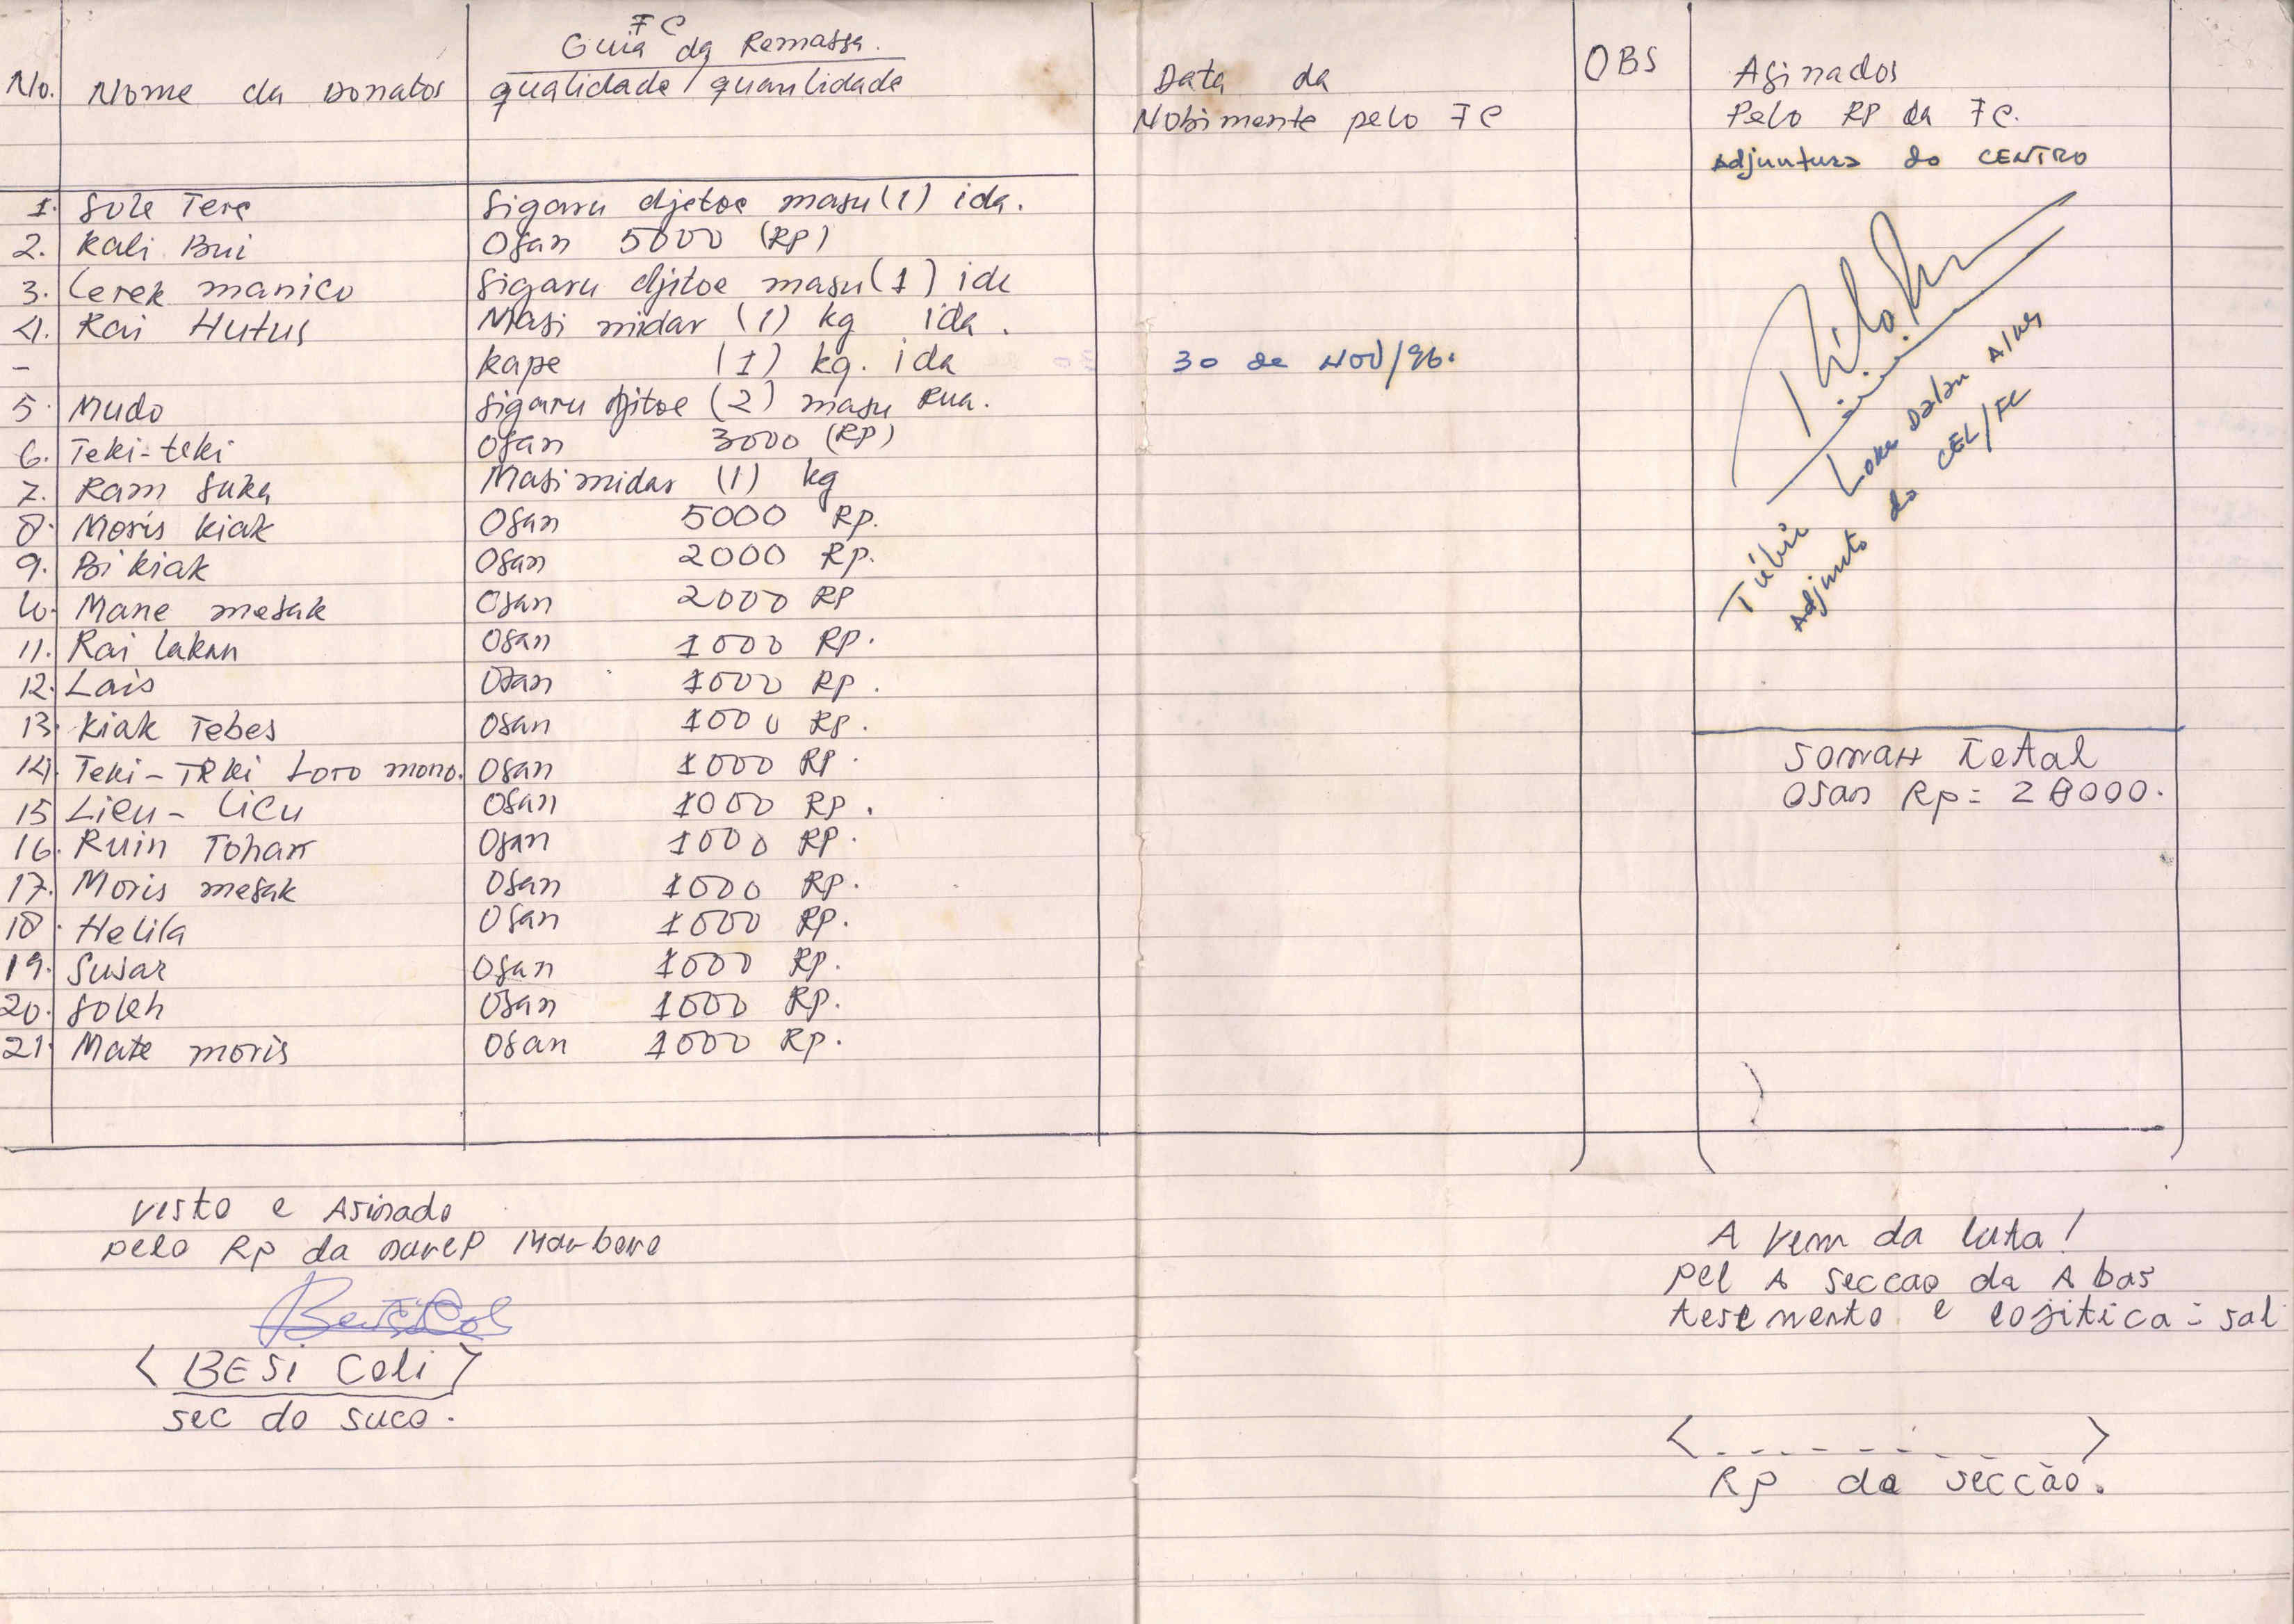 FC
Guia da Remassa.
No. Nome da Donatos qualidade / quanlidade
Data da
Nobimente pelo FC
OBS
Asinados
Pelo RP da FC.
Adjuntura do CENTRO
1. Sole Tere Sigaru djetoe masu (1) ida.
2. Kali Bui Osan 5000 (RP)
3. Lerek manico Sigaru djitoe masu (1) ida
4. Rai Hutus Masi midar (1) kg ida.
- kape (1) kg. ida 30 de NOV/96.
5. Mudo Sigaru djitoe (2) masu Rua.
6. Teki-teki Osan 3000 (RP)
7. Ram Suka Masi midar (1) kg
8. Moris kiak Osan 5000 Rp.
9. Bi kiak Osan 2000 Rp.
10. Mane mesak Osan 2000 RP
11. Rai lakan Osan 1000 RP.
12. Lais Osan 1000 RP.
13. Kiak Tebes Osan 1000 Rp.
14. Teki-Teki Loro mono. Osan 1000 RP.
15 Lieu-Licu Osan 1000 RP.
16. Ruin Tohar Osan 1000 RP.
17. Moris mesak Osan 1000 RP.
18. Helila Osan 1000 RP.
19. Susar Osan 1000 RP.
20. Soleh Osan 1000 RP.
21. Mate moris Osan 1000 Rp.
Loku Dalan Alves
Adjunto do CEL/FC
Somah Total
Osan Rp = 28000.
Visto e Asinado
pelo Rp da Nurep Mau-bere
< BESI Coli >
sec do suco.
A vem da luta!
pel A seccao da Abas
tesemento e lojitica = sal
< - - - - - - - >
Rp da secção.